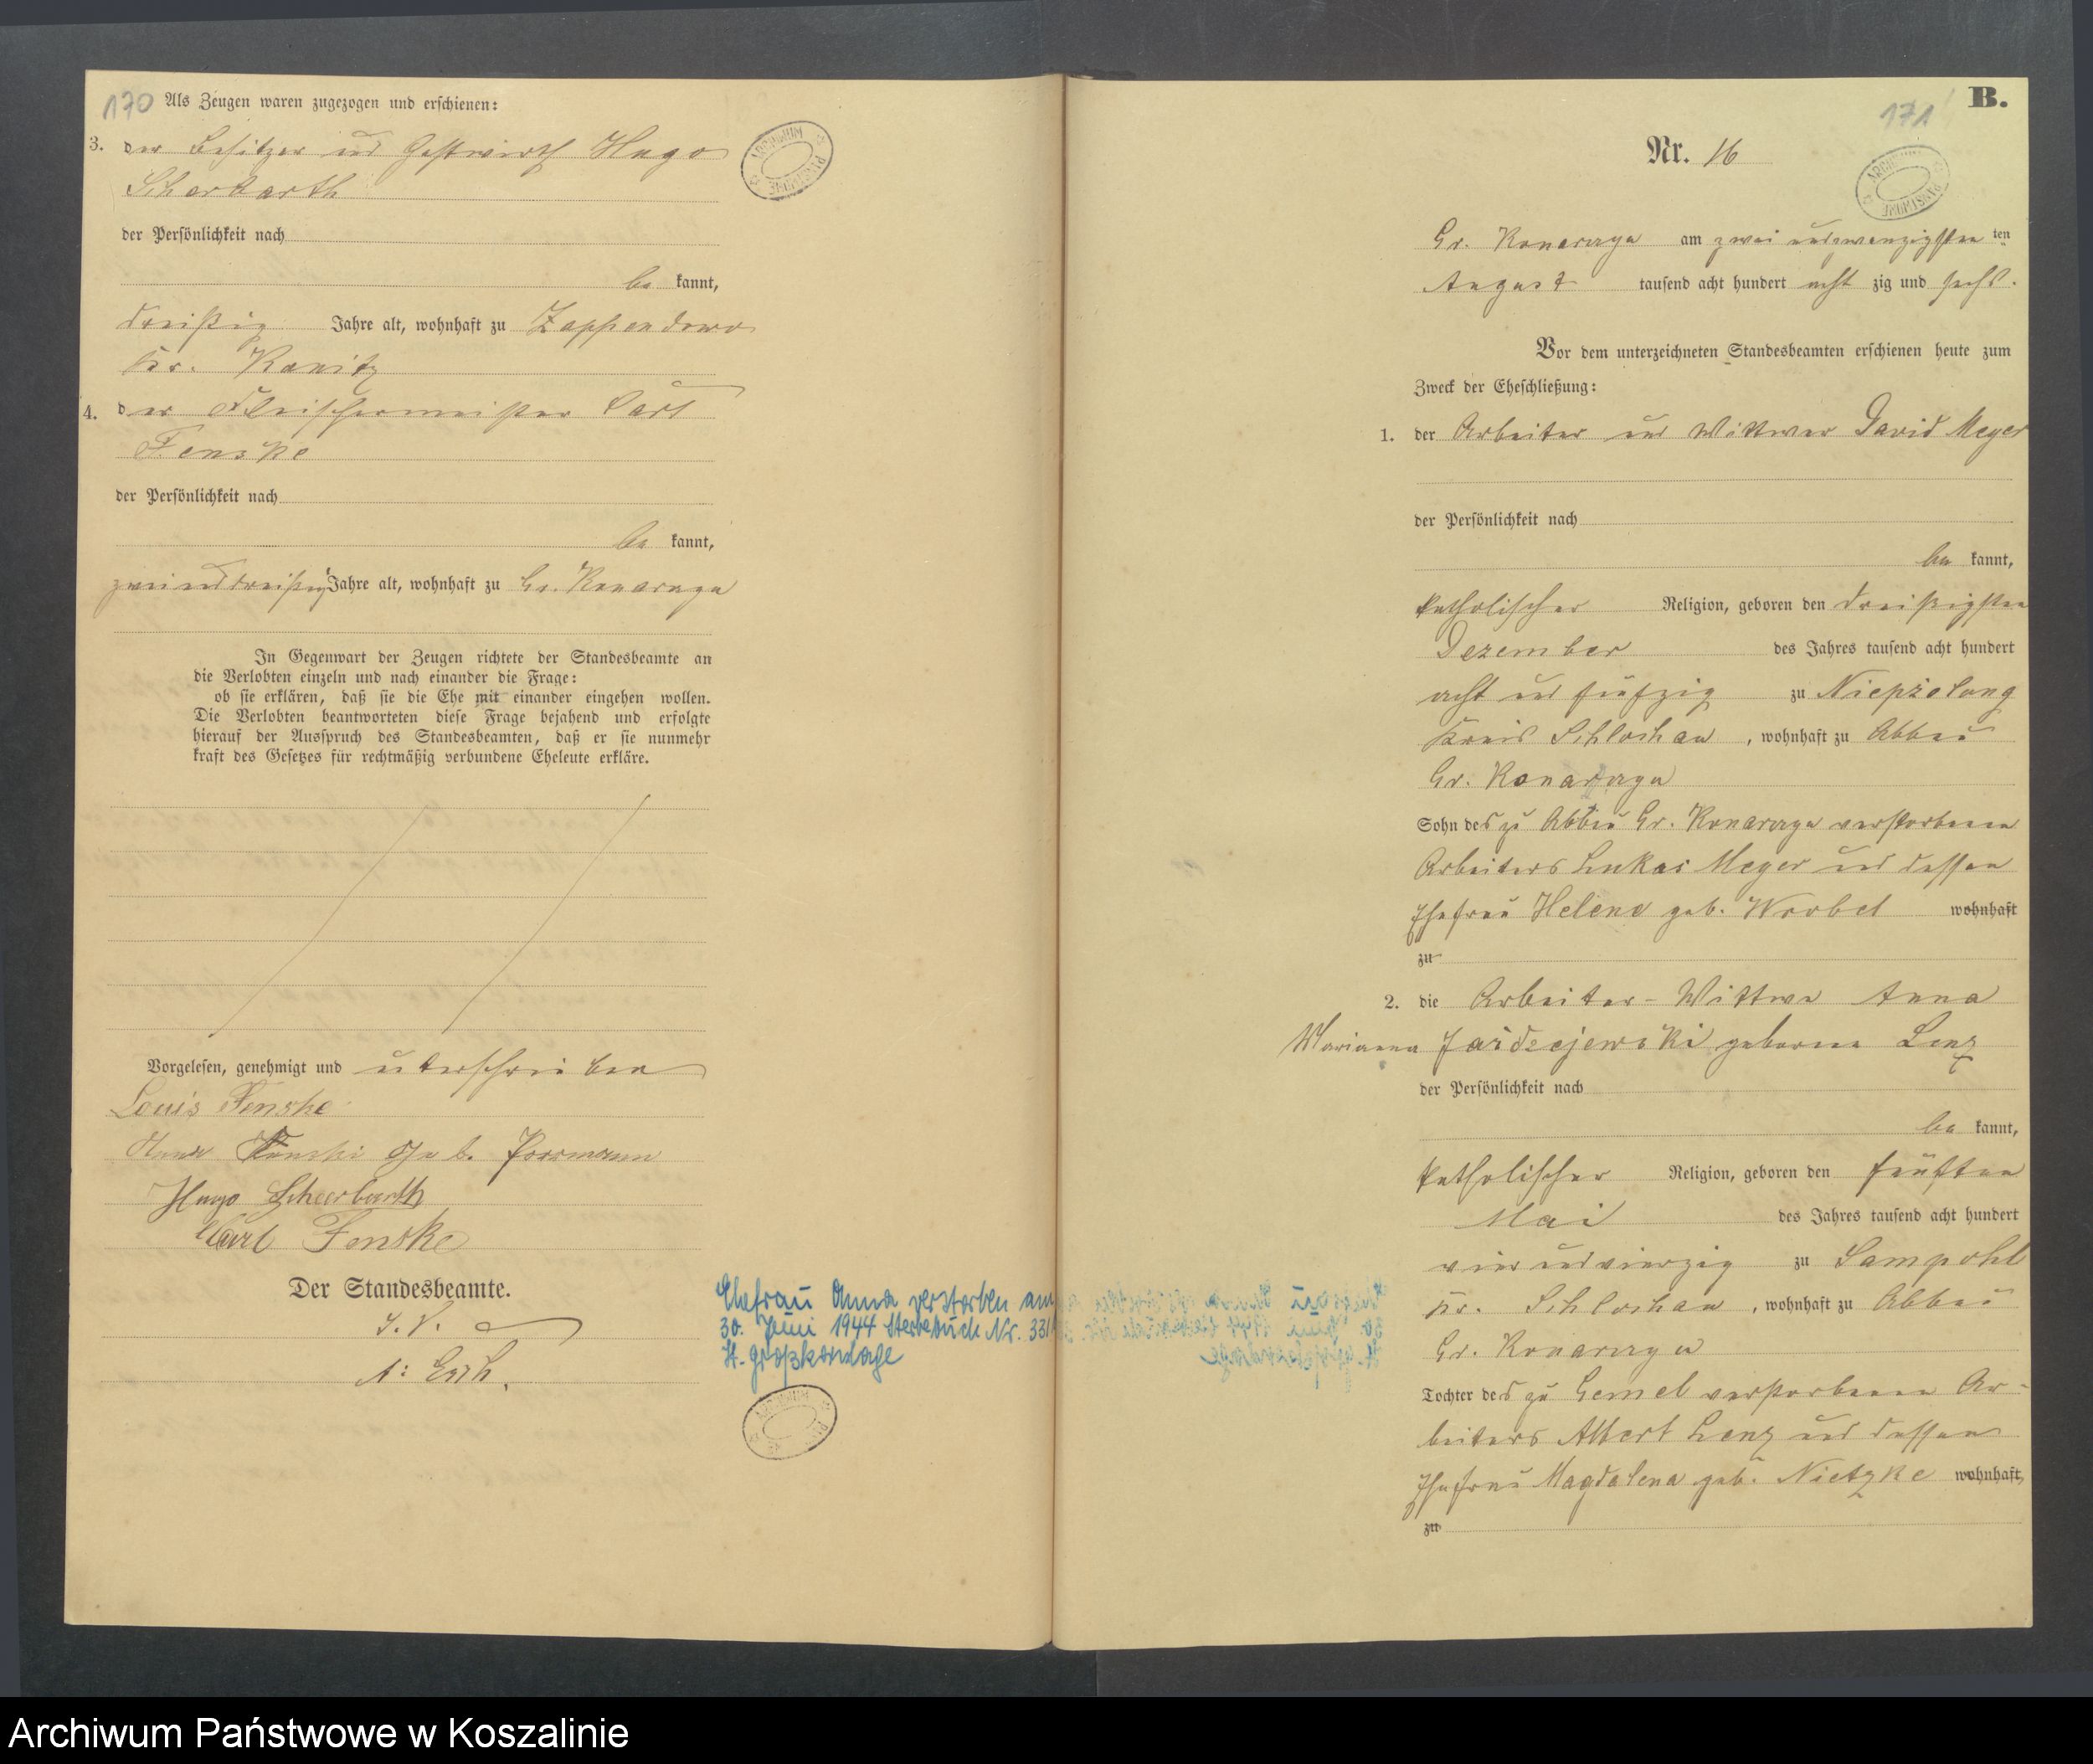 170 Als Zeugen waren zugezogen und erschienen:
3. der Besitzer und Gastwirth Hugo
Scherbarth
der Persönlichkeit nach
be kannt,
dreißig Jahre alt, wohnhaft zu Zappendowo
Kr. Konitz
4. der Fleischermeister Carl
Fenske
der Persönlichkeit nach
be kannt,
zweiunddreißig Jahre alt, wohnhaft zu Gr. Konarzyn
In Gegenwart der Zeugen richtete der Standesbeamte an
die Verlobten einzeln und nach einander die Frage:
ob sie erklären, daß sie die Ehe mit einander eingehen wollen.
Die Verlobten beantworteten diese Frage bejahend und erfolgte
hierauf der Ausspruch des Standesbeamten, daß er sie nunmehr
kraft des Gesetzes für rechtmäßig verbundene Eheleute erkläre.
Vorgelesen, genehmigt und unterschrieben
Louis Fenske
Anna Fenski geb.
Hugo Scheerbarth
Carl Fenske
Der Standesbeamte.
I. V.
Ehefrau Anna verstorben am
30. Juni 1944 Sterbebuch Nr. 331
ARCHIWUM PAŃSTWOWE
171 B.
Nr. 16
ARCHIWUM PAŃSTWOWE
Gr. Konarzyn am zwei und zwanzigsten ten
August tausend acht hundert acht zig und sechs.
Vor dem unterzeichneten Standesbeamten erschienen heute zum
Zweck der Eheschließung:
1. der Arbeiter und Wittwer David Meyer
der Persönlichkeit nach
be kannt,
katholischer Religion, geboren den dreißigsten
Dezember des Jahres tausend acht hundert
acht und fünfzig zu Niepszolong
Kreis Schlochau, wohnhaft zu Abbau
Gr. Konarzyn
Sohn des zu Abbau Gr. Konarzyn verstorbenen
Arbeiters Lukas Meyer und dessen
Ehefrau Helene geb. Wrobel wohnhaft
zu
2. die Arbeiter-Wittwe Anna
Marianna Jaidzejewski geborene Lenz
der Persönlichkeit nach
be kannt,
katholischer Religion, geboren den fünften
Mai des Jahres tausend acht hundert
vier und vierzig zu Sampohl
Kr. Schlochau, wohnhaft zu Abbau
Gr. Konarzyn
Tochter des zu Gemel verstorbenen Ar-
beiters Albert Lenz und dessen
Ehefrau Magdalena geb. Nietzke wohnhaft
zu
ARCHIWUM
Archiwum Państwowe w Koszalinie